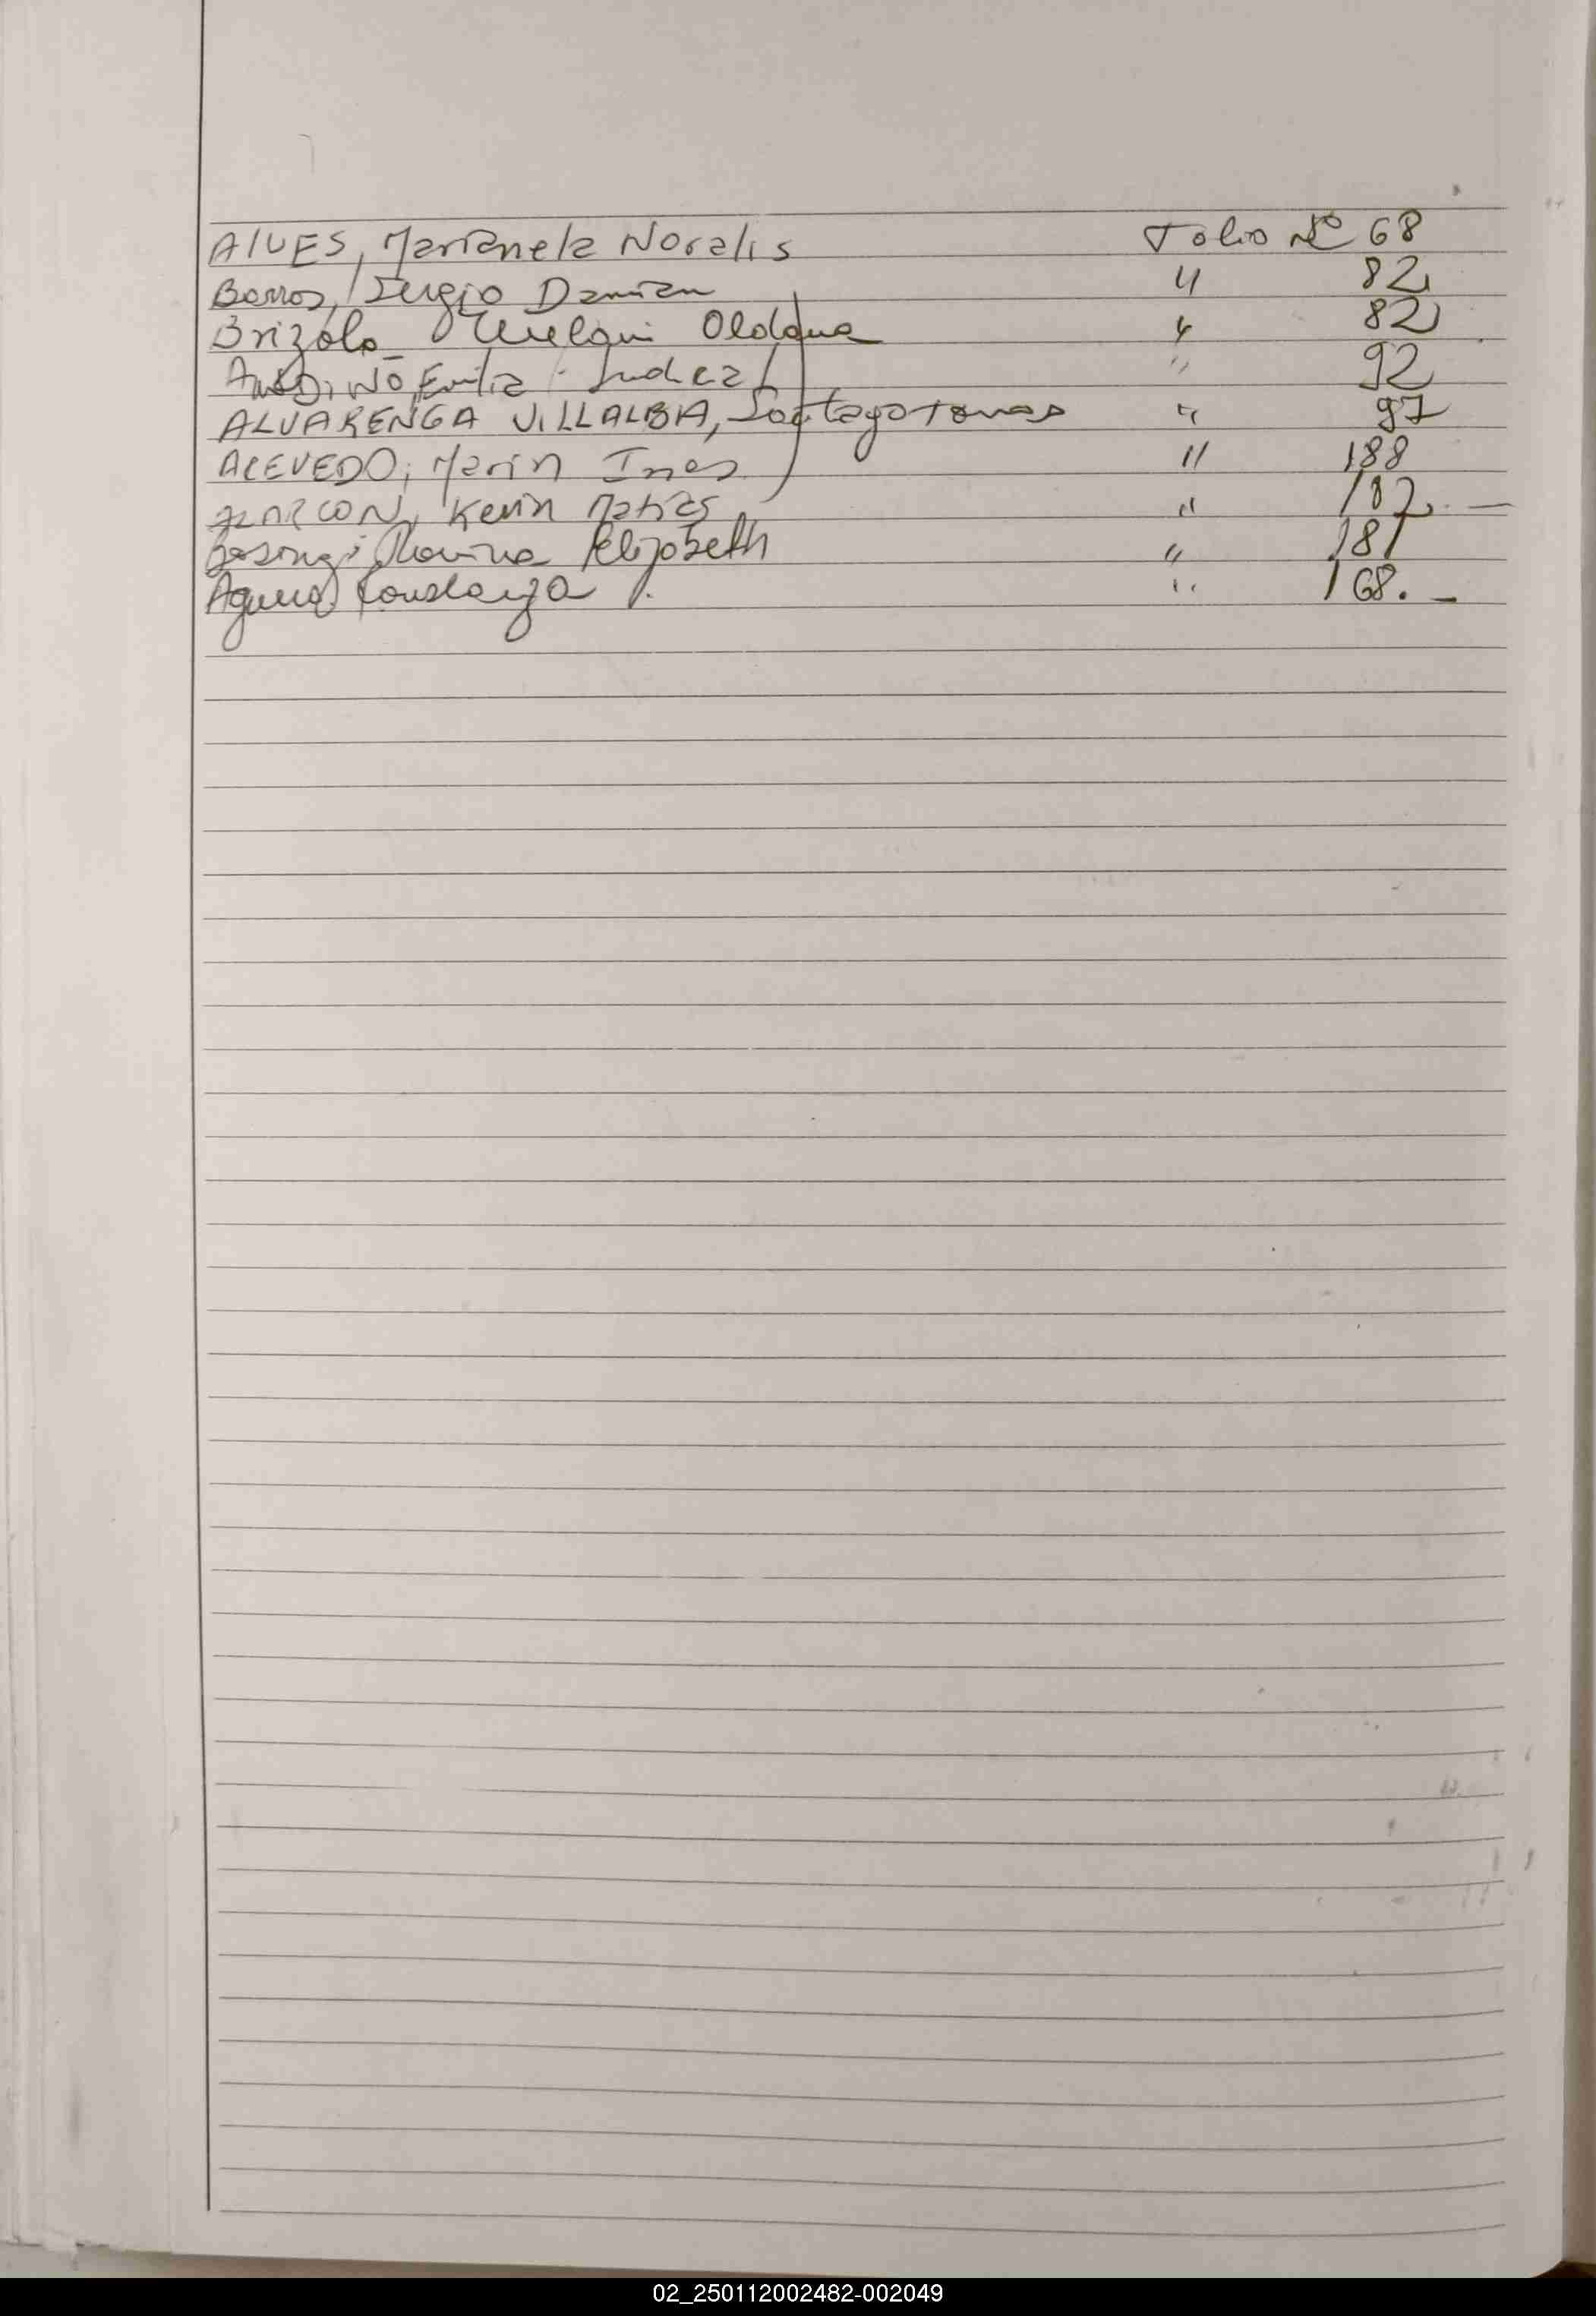 AlVES, Marianela Noralis Folio Nº 68
Barros, Sergio Damian " 82
Brizola Oldana " 82
Emilia " 92
ALVARENGA VILLALBA, Santiago Tomas " 97
ACEVEDO, Maria Ines " 188
ALARCON, Kevin Matias " 187.—
Elizabeth " 181
Aguero Constanza " 168.—
02_250112002482-002049